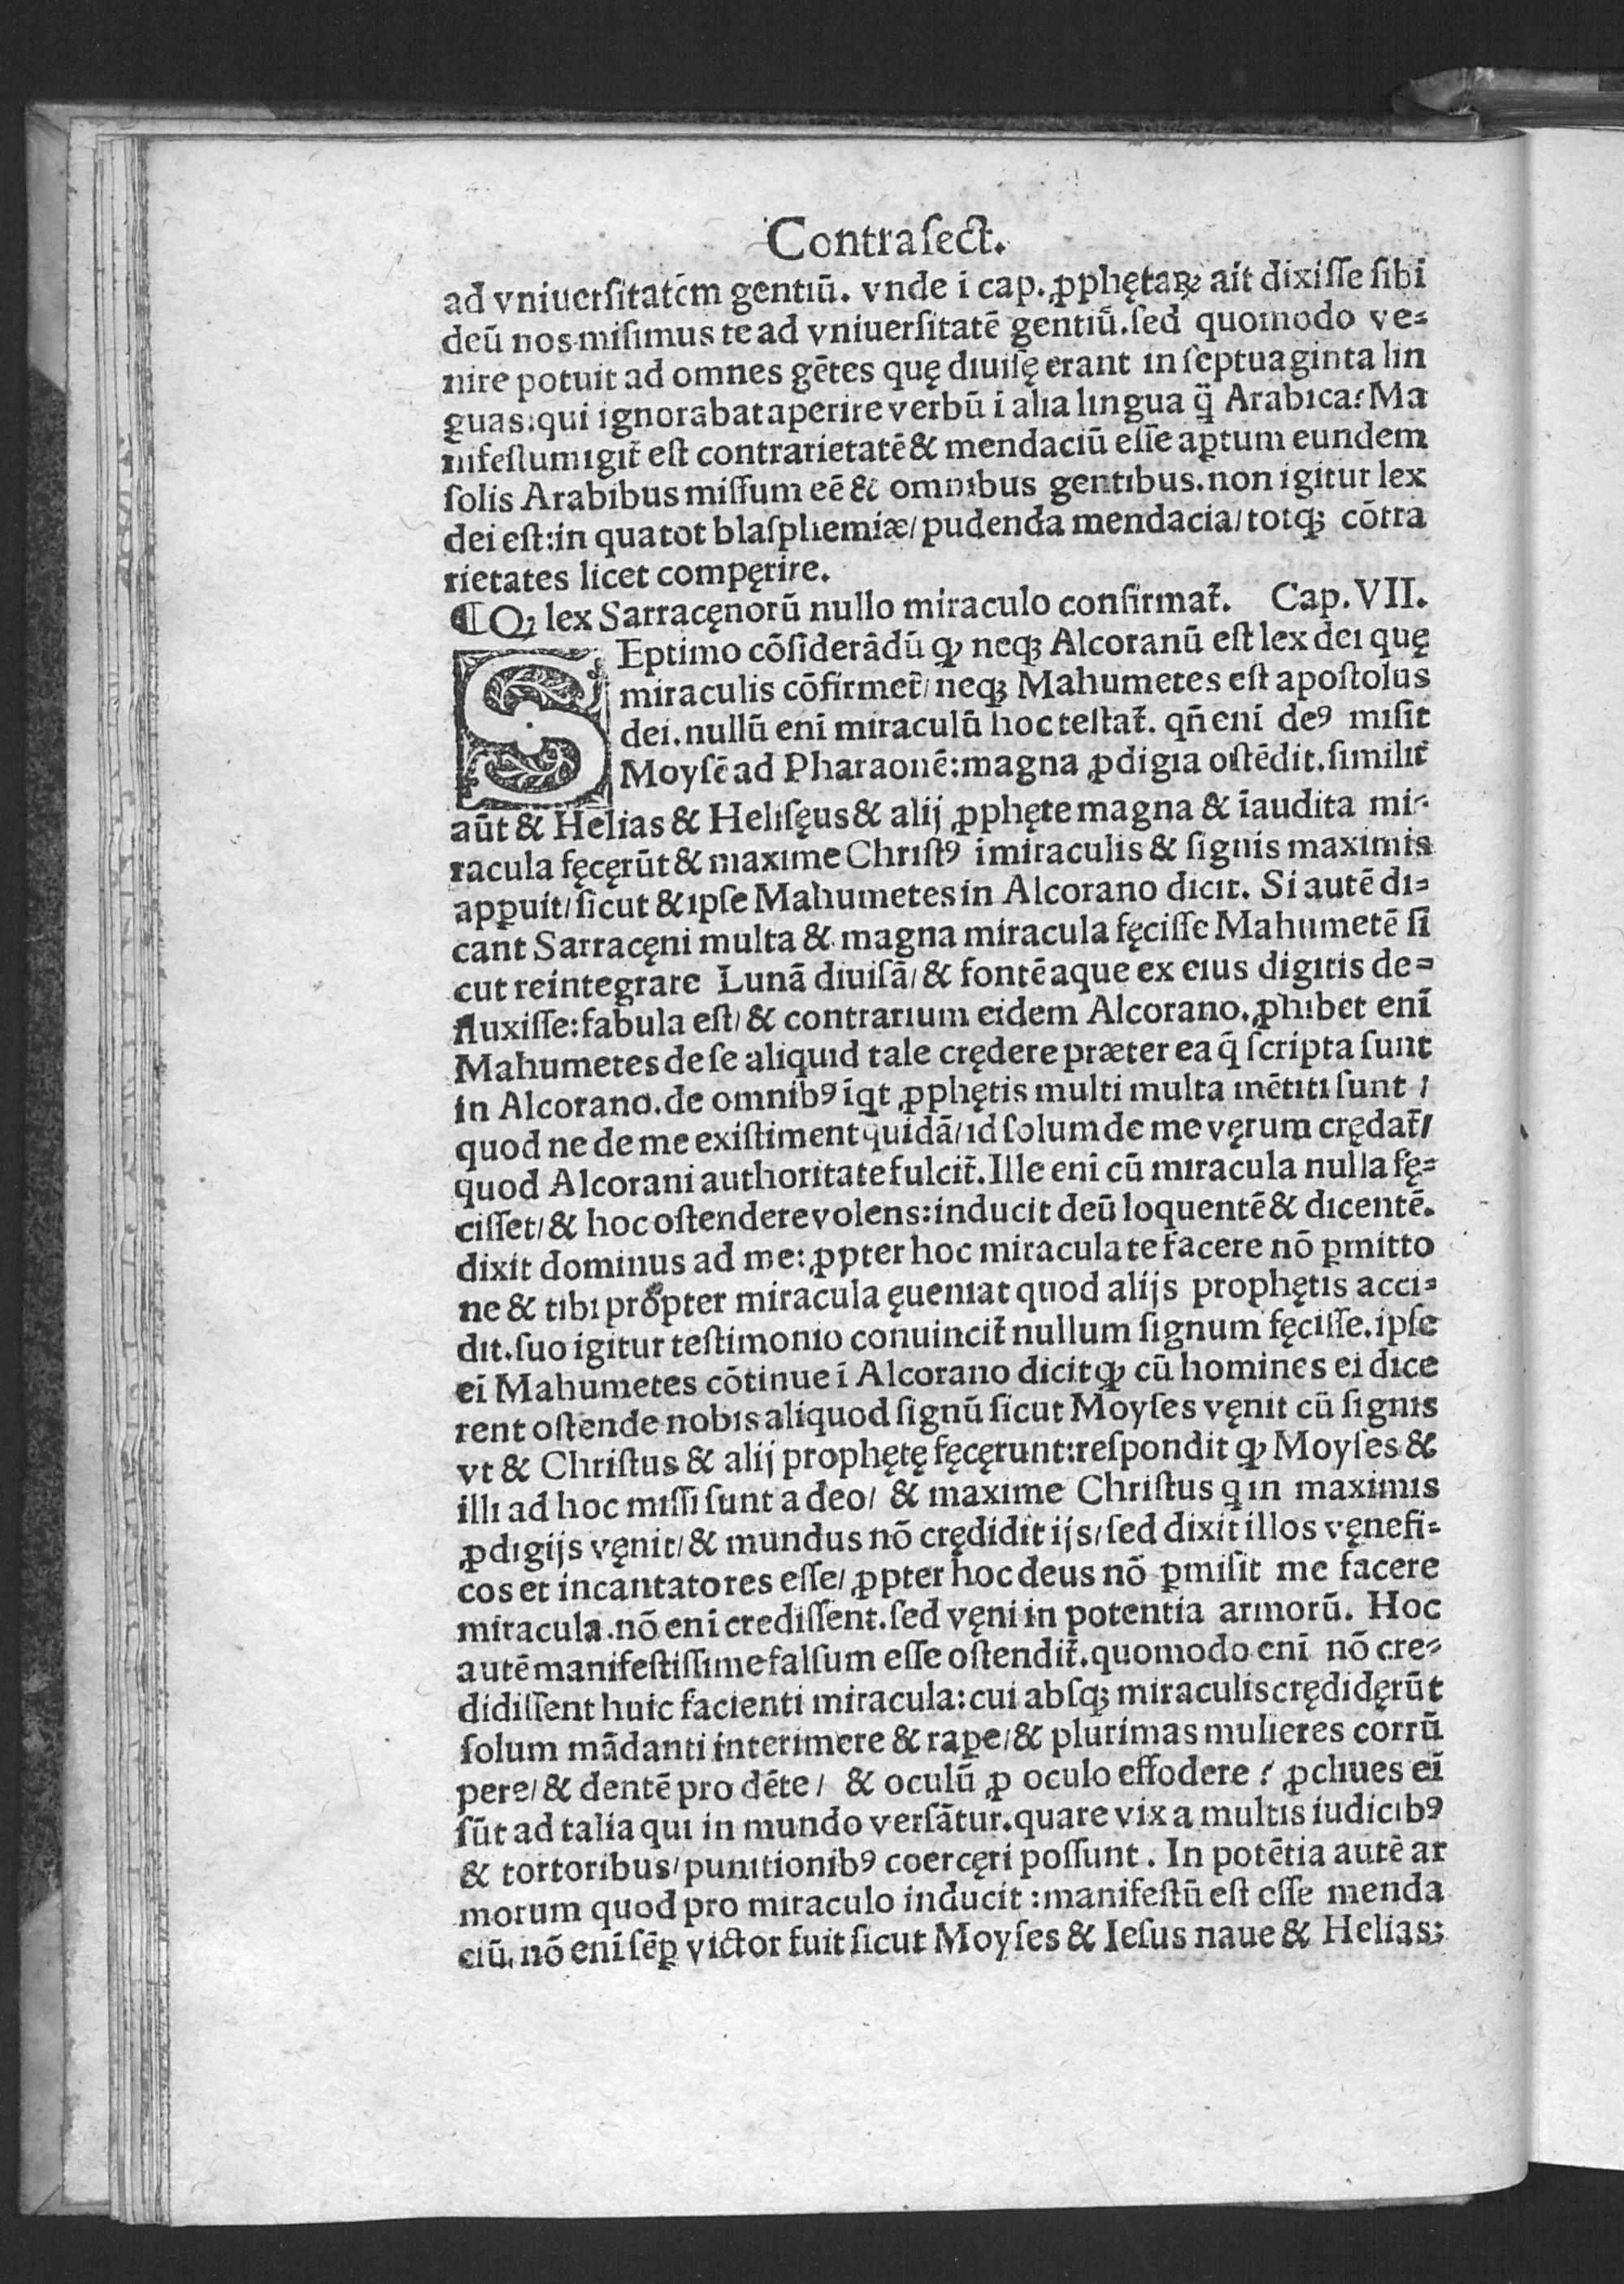 Contra ſect.
ad vniuerſitatēm gentiū. vnde i cap. ꝓphętaꝝ ait dixiſſe ſibi
deū nos miſimus te ad vniuerſitatē gentiū. ſed quomodo ve⸗
nire potuit ad omnes gētes quę diuiſę erant in ſeptuaginta lin
guas: qui ignorabat aperire verbū i alia lingua q̄ Arabica? Ma
nifeſtum igit̄ eſt contrarietatē & mendaciū eſſe aꝑtum eundem
ſolis Arabibus miſſum eē & omnibus gentibus. non igitur lex
dei eſt: in qua tot blaſphemiæ/ pudenda mendacia/ totqꝫ cōtra
rietates licet compęrire.
¶ Qꝫ lex Sarracęnorū nullo miraculo confirmat̄. Cap. VII.
SEptimo cōſiderādū ꝙ neqꝫ Alcoranū eſt lex dei quę
miraculis cōfirmet̄/ neqꝫ Mahumetes eſt apoſtolus
dei. nullū enī miraculū hoc teſtat̄. qñ enī deꝰ miſit
Moyſē ad Pharaonē: magna ꝓdigia oſtēdit. ſimilit̄
aūt & Helias & Heliſęus & alij ꝓphęte magna & īaudita mi⸗
racula fęcęrūt & maxime Chriſtꝰ i miraculis & ſignis maximis
apꝑuit/ ſicut & ipſe Mahumetes in Alcorano dicit. Si autē di⸗
cant Sarracęni multa & magna miracula fęciſſe Mahumetē ſi
cut reintegrare Lunā diuiſā/ & fontē aque ex eius digitis de⸗
fluxiſſe: fabula eſt/ & contrarium eidem Alcorano. ꝓhibet enī
Mahumetes de ſe aliquid tale crędere præter ea q̄ ſcripta ſunt
in Alcorano. de omnibꝰ īqt ꝓphętis multi multa mētiti ſunt /
quod ne de me exiſtiment quidā/ id ſolum de me vęrum crędat̄/
quod Alcorani authoritate fulcit̄. Ille enī cū miracula nulla fę⸗
ciſſet/ & hoc oſtendere volens: inducit deū loquentē & dicentē.
dixit dominus ad me: ꝓpter hoc miracula te facere nō ꝑmitto
ne & tibi propter miracula ęueniat quod alijs prophętis acci⸗
dit. ſuo igitur teſtimonio conuincit̄ nullum ſignum fęciſſe. ipſe
eī Mahumetes cōtinue ī Alcorano dicit ꝙ cū homines ei dice
rent oſtende nobis aliquod ſignū ſicut Moyſes vęnit cū ſignis
vt & Chriſtus & alij prophętę fęcęrunt: reſpondit ꝙ Moyſes &
illi ad hoc miſſi ſunt a deo/ & maxime Chriſtus q in maximis
ꝓdigijs vęnit/ & mundus nō crędidit ijs/ ſed dixit illos vęnefi⸗
cos et incantatores eſſe/ ꝓpter hoc deus nō ꝑmiſit me facere
miracula. nō enī crediſſent. ſed vęni in potentia armorū. Hoc
autē manifeſtiſſime falſum eſſe oſtendit̄. quomodo enī nō cre⸗
didiſſent huic facienti miracula: cui abſqꝫ miraculis crędidęrūt
ſolum mādanti interimere & raꝑe/ & plurimas mulieres corrū
pere/ & dentē pro dēte/ & oculū ꝓ oculo effodere? ꝓcliues eī
ſūt ad talia qui in mundo verſātur. quare vix a multis iudicibꝰ
& tortoribus/ punitionibꝰ coercęri poſſunt. In potētia autē ar
morum quod pro miraculo inducit: manifeſtū eſt eſſe menda
ciū. nō enī ſēꝑ victor fuit ſicut Moyſes & Ieſus naue & Helias: